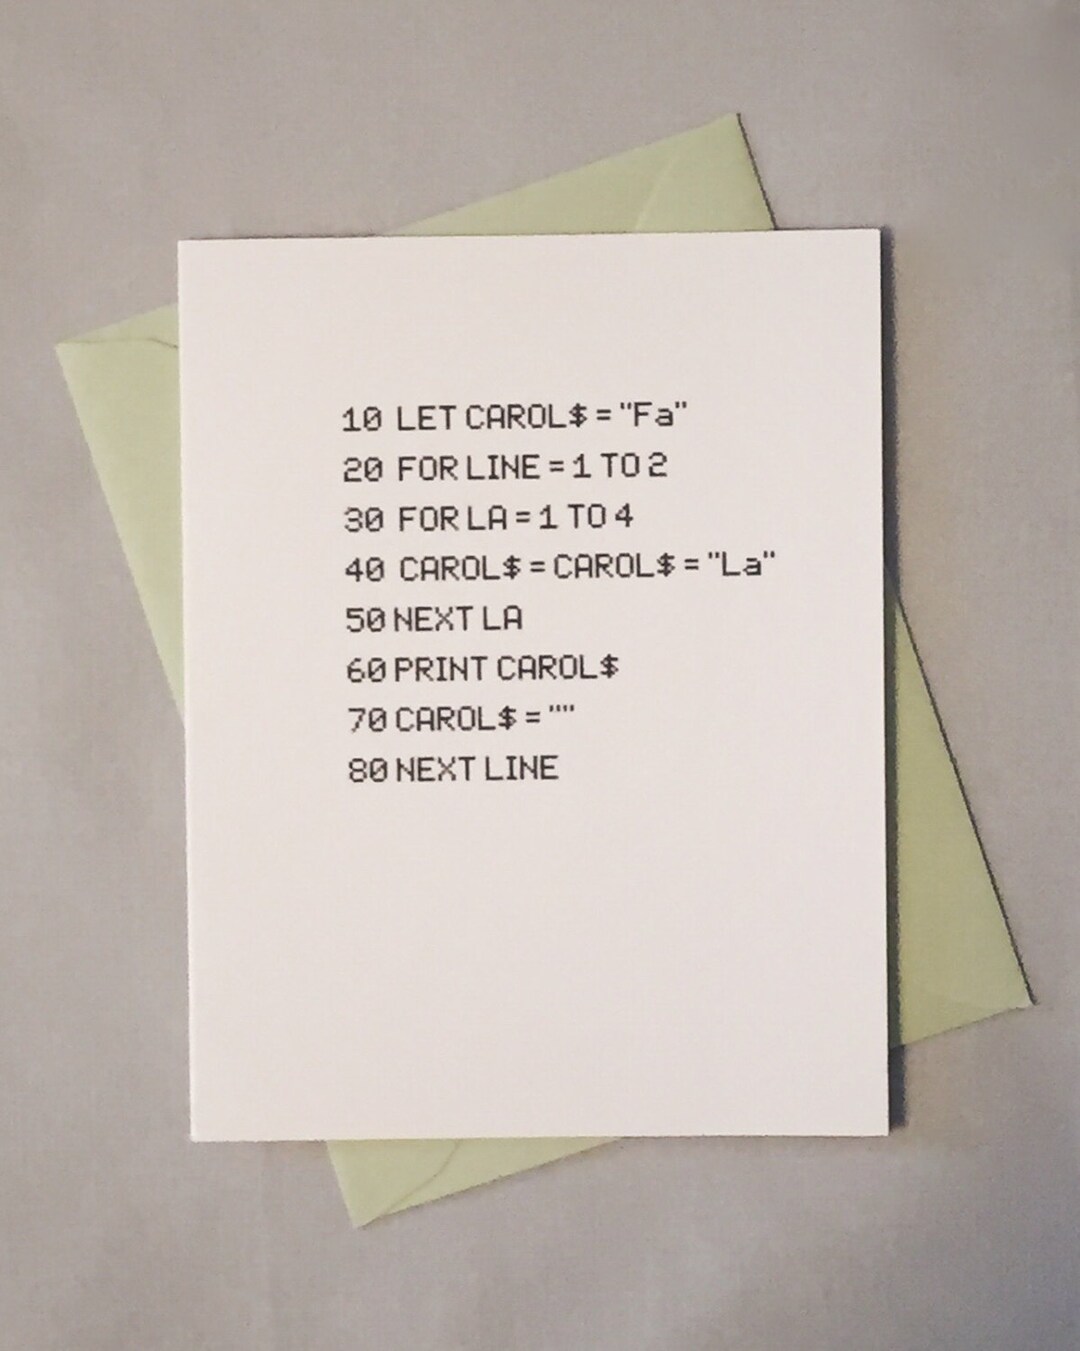 10 LET CAROL$ = "Fa"
20 FOR LINE = 1 TO 2
30 FOR LA = 1 TO 4
40 CAROL$ = CAROL$ = "La"
50 NEXT LA
60 PRINT CAROL$
70 CAROL$ = ""
80 NEXT LINE